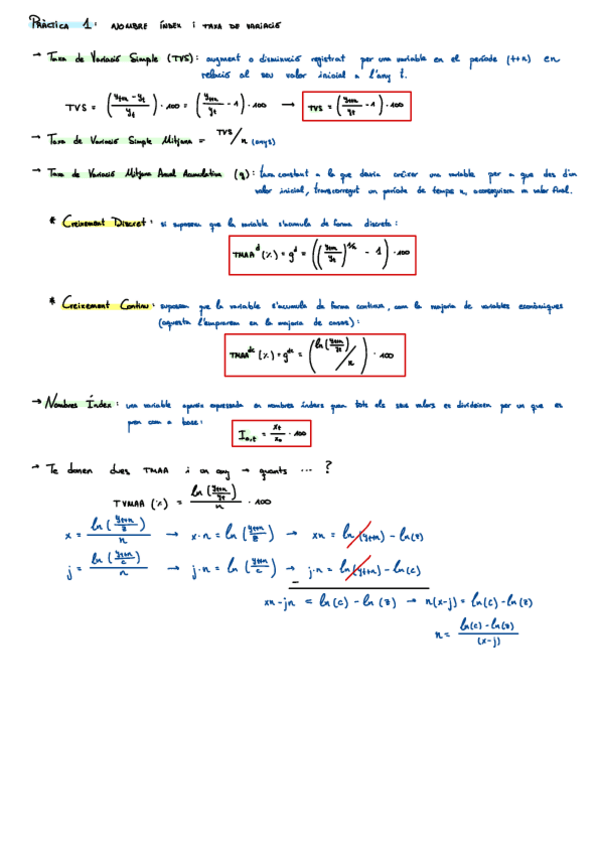 PRÀCTICA 1: NOMBRE ÍNDEX I TAXA DE VARIACIÓ
→ Taxa de Variació Simple (TVS): augment o disminució registrat per una variable en el període (t+n) en
relació al seu valor inicial a l'any t.
TVS = ((y_{t+n} - y_t) / y_t) · 100 = (y_{t+n}/y_t - 1) · 100 → TVS = (y_{t+n}/y_t - 1) · 100
→ Taxa de Variació Simple Mitjana = TVS/n (anys)
→ Taxa de Variació Mitjana Anual Acumulativa (g): taxa constant a la que deuria créixer una variable per a que des d'un
valor inicial, transcorregut un període de temps n, aconseguirem un valor final.
* Creixement Discret: si suposem que la variable s'acumula de forma discreta:
TMAA^d (%) = g^d = ((y_{t+n}/y_t)^{1/n} - 1) · 100
* Creixement Continu: suposem que la variable s'acumula de forma contínua, com la majoria de variables econòmiques
(aquesta l'emprarem en la majoria de casos):
TMAA^{dc} (%) = g^{dc} = (ln(y_{t+n}/y_t) / n) · 100
→ Nombres Índex: una variable apareix expressada en nombres índexs quan tots els seus valors es divideixen per un que es
pren com a base: I_{0,t} = x_t/x_0 · 100
→ Te donen dues TMAA i un any → quants ... ?
TVMAA (%) = ln(y_{t+n}/y_t) / n · 100
x = ln(y_{t+n}/z) / n → x·n = ln(y_{t+n}/z) → xn = ln(y_{t+n}) - ln(z)
j = ln(y_{t+n}/c) / n → j·n = ln(y_{t+n}/c) → j·n = ln(y_{t+n}) - ln(c)
xn - jn = ln(c) - ln(z) → n(x-j) = ln(c) - ln(z)
n = (ln(c) - ln(z)) / (x-j)